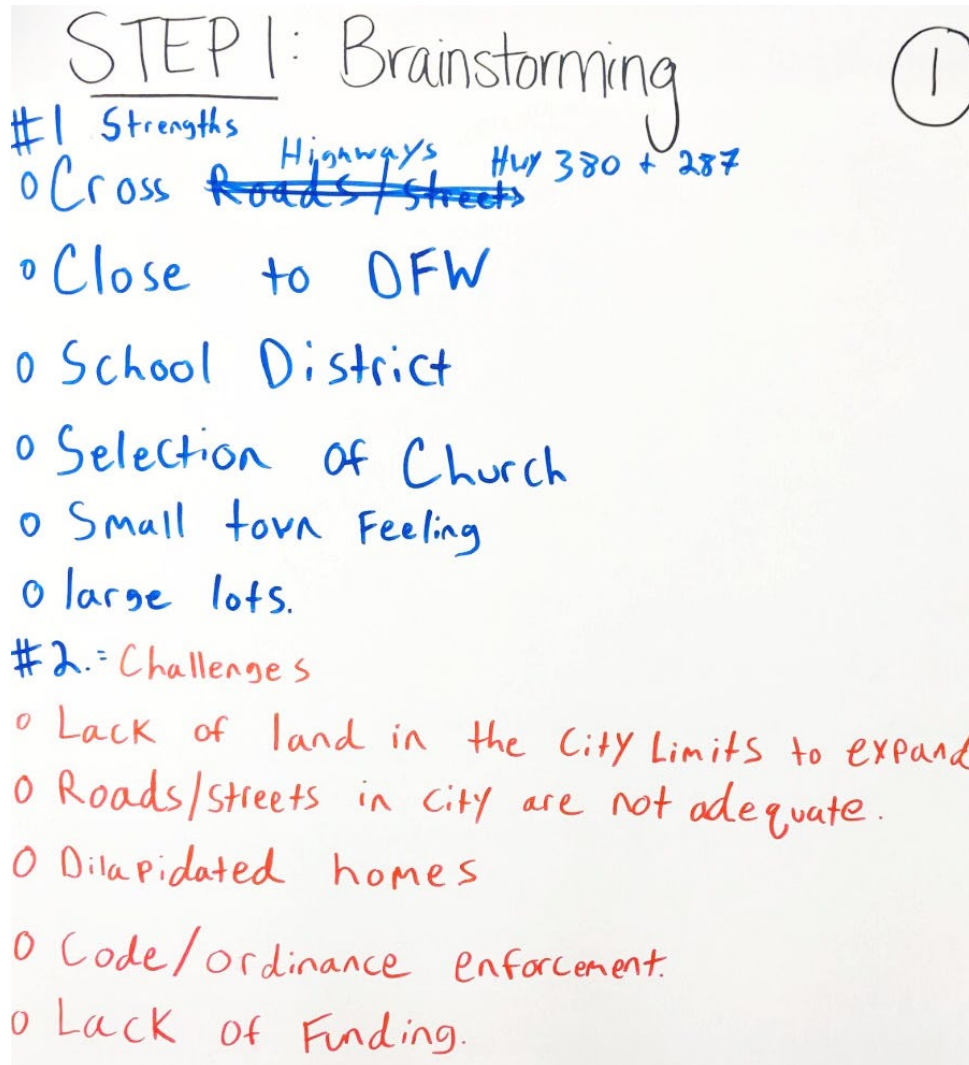 STEP 1: Brainstorming
1
#1 Strengths
Highways Hwy 380 + 287
o Cross Roads/Streets
o Close to DFW
o School District
o Selection of Church
o Small town Feeling
o large lots.
#2.= Challenges
o Lack of land in the City Limits to expand
o Roads/streets in city are not adequate.
o Dilapidated homes
o Code/ordinance enforcement.
o Lack of Funding.